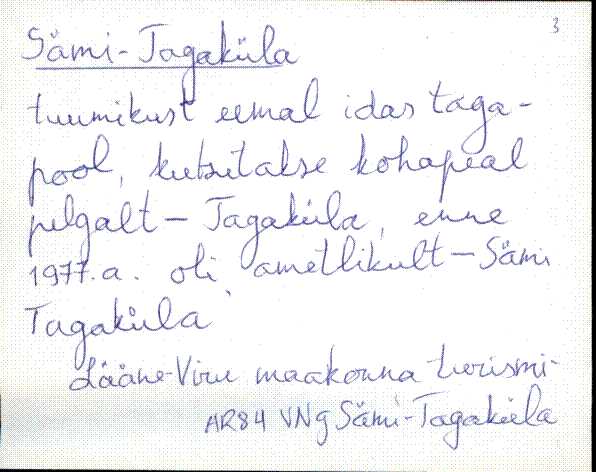 3
Sämi-Tagaküla
tuumikust eemal idas taga-
pool, kutsutakse kohapeal
pelgalt – Tagaküla, enne
1977. a. oli ametlikult – Sämi
Tagaküla
Lääne-Viru maakonna turismi-
AR84 VNg Sämi-Tagaküla